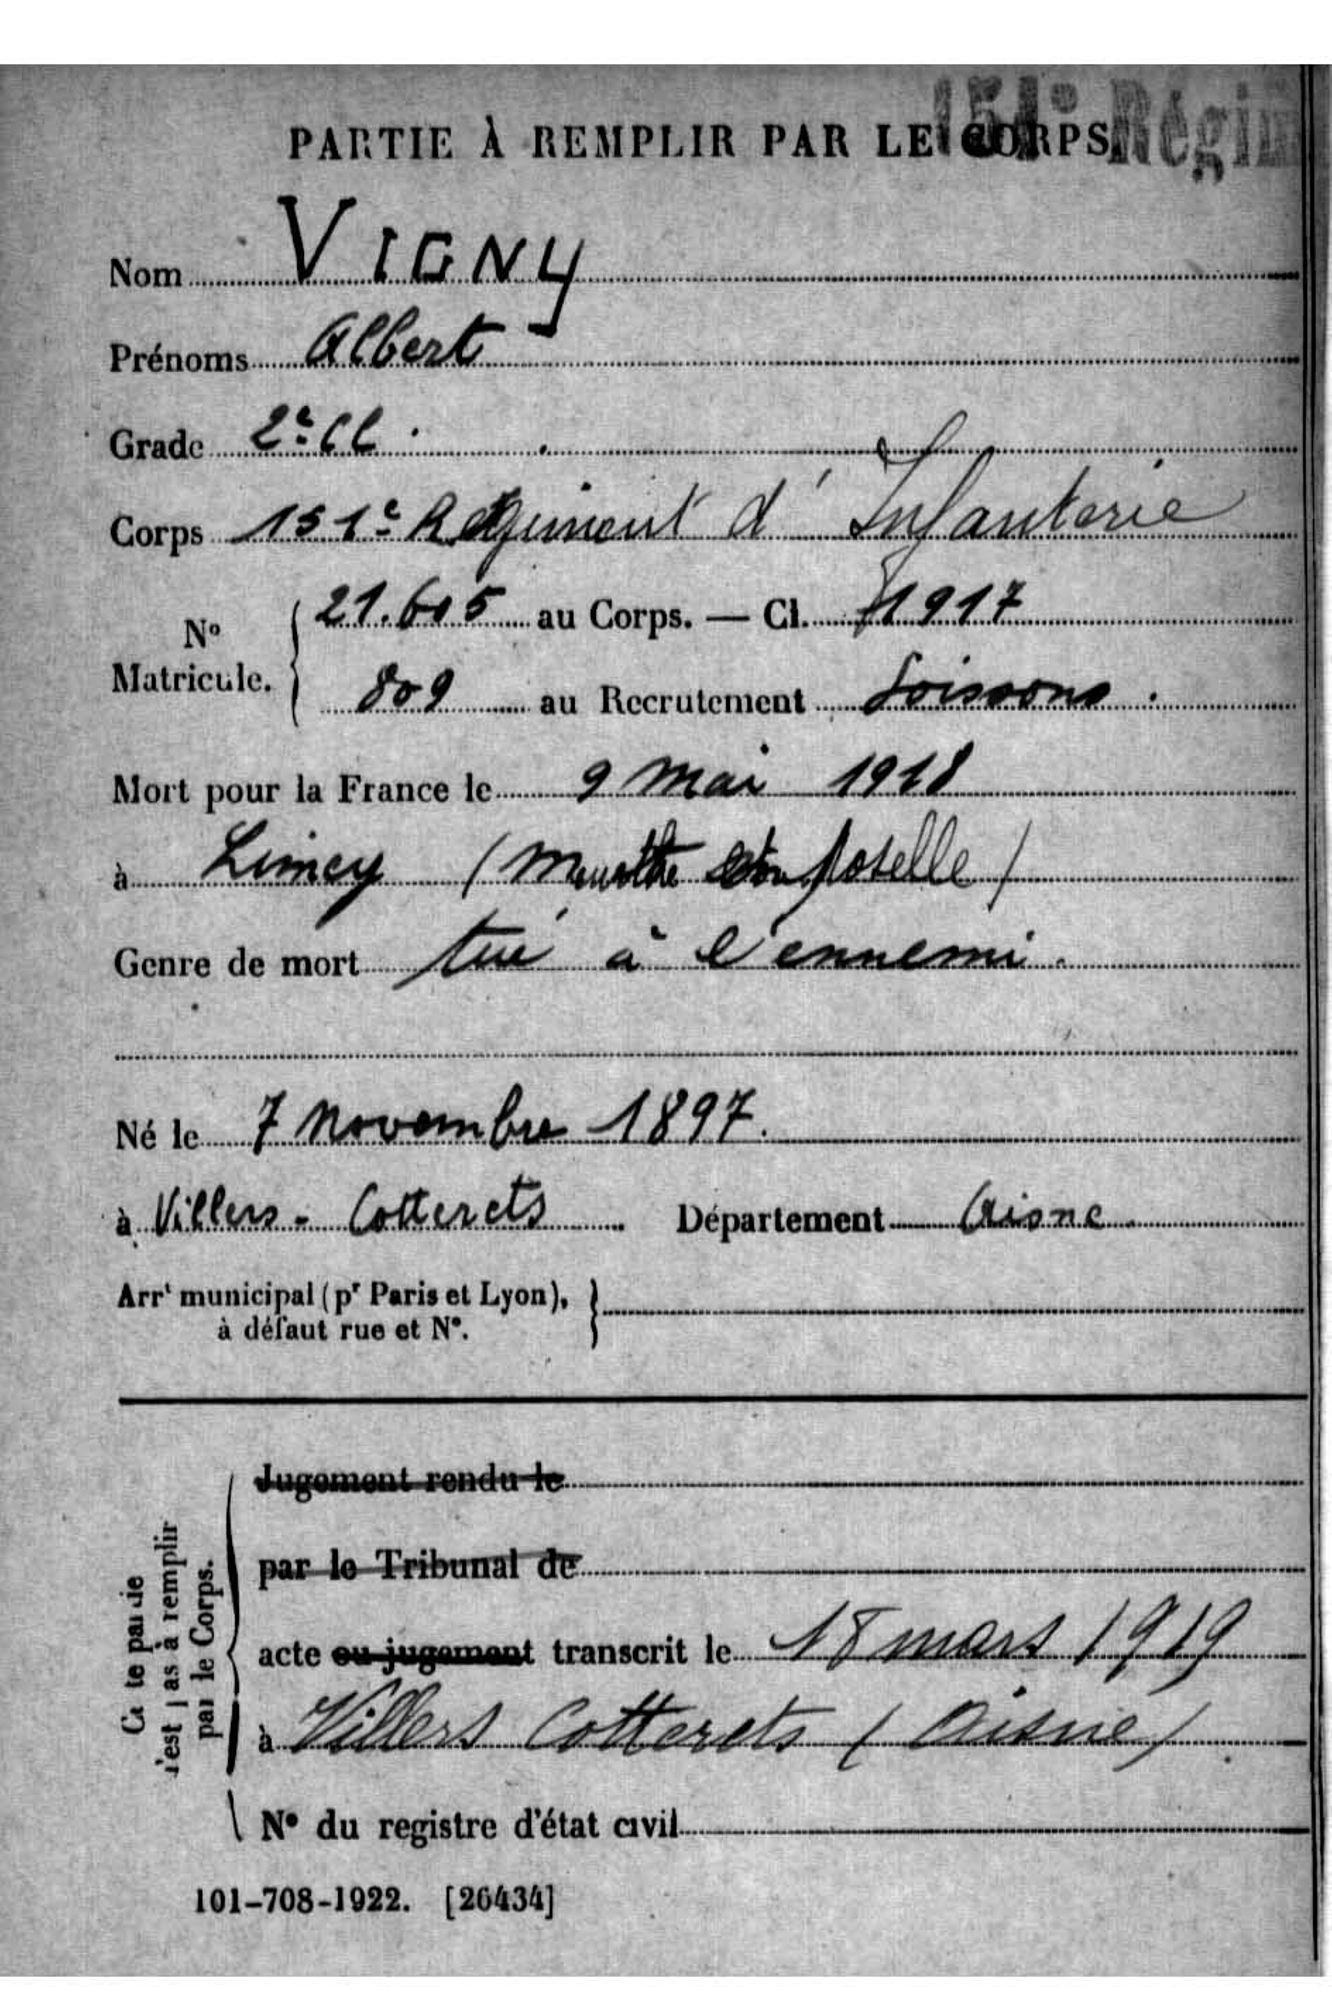 151e Régim
PARTIE À REMPLIR PAR LE CORPS.
Nom VIGNY
Prénoms Albert
Grade 2e Cl.
Corps 151e Régiment d'Infanterie
N° Matricule. { 21.605 au Corps. — Cl. 1917
809 au Recrutement Soissons.
Mort pour la France le 9 mai 1918
à Limey (Meurthe et Moselle)
Genre de mort tué à l'ennemi.
Né le 7 Novembre 1897.
à Villers-Cotterets Département Aisne
Arrt municipal (pr Paris et Lyon), }
à défaut rue et N°.
Jugement rendu le
par le Tribunal de
acte ou jugement transcrit le 18 mars 1919
à Villers Cotterets (Aisne)
N° du registre d'état civil
Cette partie
n'est pas à remplir
par le Corps.
101-708-1922. [26434]